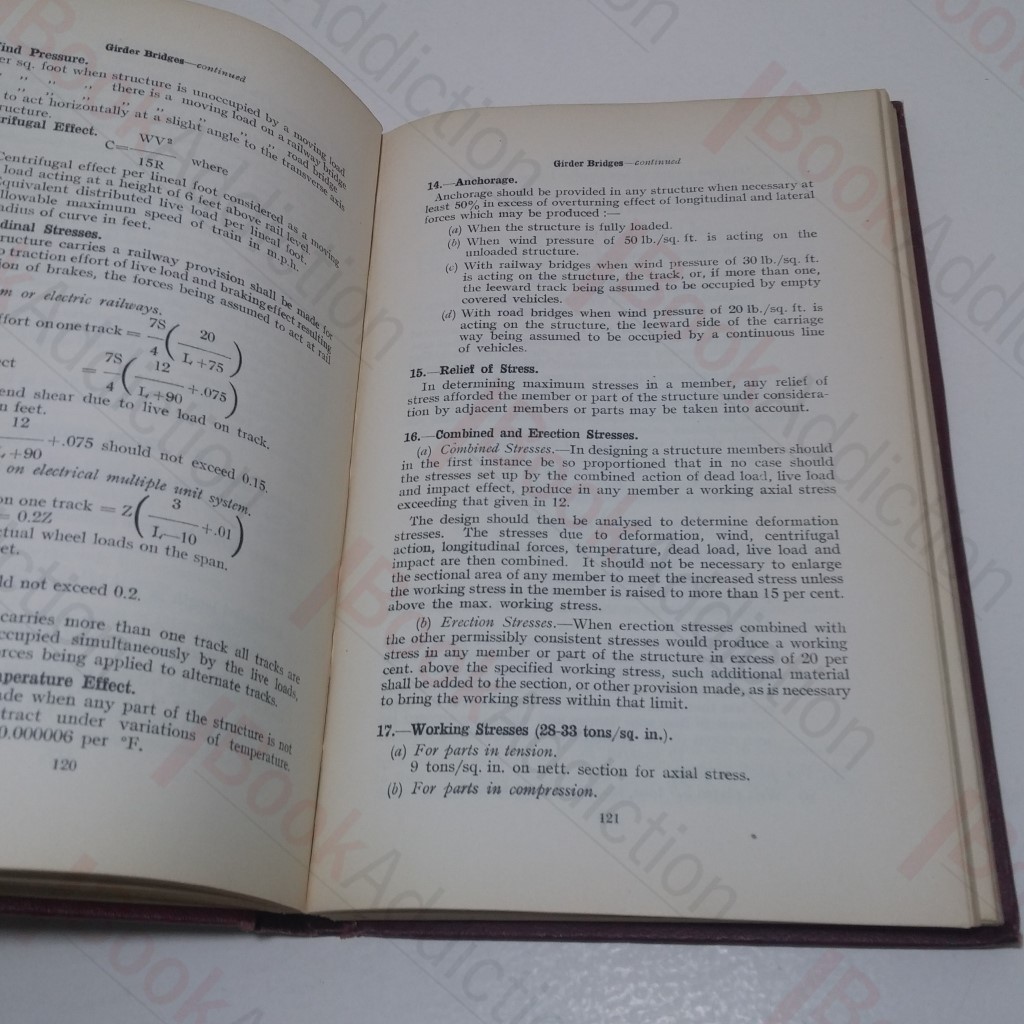 Girder Bridges—continued
ind Pressure.
er sq. foot when structure is unoccupied by a moving load
,, ,, ,, there is a moving load on a railway bridge
,, ,, ,, ,, ,, road bridge
to act horizontally at a slight angle to the transverse axis
ructure.
rifugal Effect.
C= WV² / 15R where
Centrifugal effect per lineal foot considered as a moving
load acting at a height of 6 feet above rail level.
quivalent distributed live load per lineal foot.
llowable maximum speed of train in m.p.h.
adius of curve in feet.
dinal Stresses.
ructure carries a railway provision shall be made for
o traction effort of live load and braking effect resulting
on of brakes, the forces being assumed to act at rail
m or electric railways.
ffort on one track = 7S/4 ( 20 / L+75 )
ect = 7S/4 ( 12 / L+90 +.075 )
end shear due to live load on track.
n feet.
12 / L+90 +.075 should not exceed 0.15.
on electrical multiple unit system.
on one track = Z ( 3 / L—10 +.01 )
= 0.2Z
ctual wheel loads on the span.
et.
ld not exceed 0.2.
carries more than one track all tracks are
ccupied simultaneously by the live loads,
rces being applied to alternate tracks.
perature Effect.
de when any part of the structure is not
tract under variations of temperature.
0.000006 per °F.
120
Girder Bridges—continued
14.—Anchorage.
Anchorage should be provided in any structure when necessary at
least 50% in excess of overturning effect of longitudinal and lateral
forces which may be produced :—
(a) When the structure is fully loaded.
(b) When wind pressure of 50 lb./sq. ft. is acting on the
unloaded structure.
(c) With railway bridges when wind pressure of 30 lb./sq. ft.
is acting on the structure, the track, or, if more than one,
the leeward track being assumed to be occupied by empty
covered vehicles.
(d) With road bridges when wind pressure of 20 lb./sq. ft. is
acting on the structure, the leeward side of the carriage
way being assumed to be occupied by a continuous line
of vehicles.
15.—Relief of Stress.
In determining maximum stresses in a member, any relief of
stress afforded the member or part of the structure under considera-
tion by adjacent members or parts may be taken into account.
16.—Combined and Erection Stresses.
(a) Combined Stresses.—In designing a structure members should
in the first instance be so proportioned that in no case should
the stresses set up by the combined action of dead load, live load
and impact effect, produce in any member a working axial stress
exceeding that given in 12.
The design should then be analysed to determine deformation
stresses. The stresses due to deformation, wind, centrifugal
action, longitudinal forces, temperature, dead load, live load and
impact are then combined. It should not be necessary to enlarge
the sectional area of any member to meet the increased stress unless
the working stress in the member is raised to more than 15 per cent.
above the max. working stress.
(b) Erection Stresses.—When erection stresses combined with
the other permissibly consistent stresses would produce a working
stress in any member or part of the structure in excess of 20 per
cent. above the specified working stress, such additional material
shall be added to the section, or other provision made, as is necessary
to bring the working stress within that limit.
17.—Working Stresses (28-33 tons/sq. in.).
(a) For parts in tension.
9 tons/sq. in. on nett. section for axial stress.
(b) For parts in compression.
121
BookAddiction